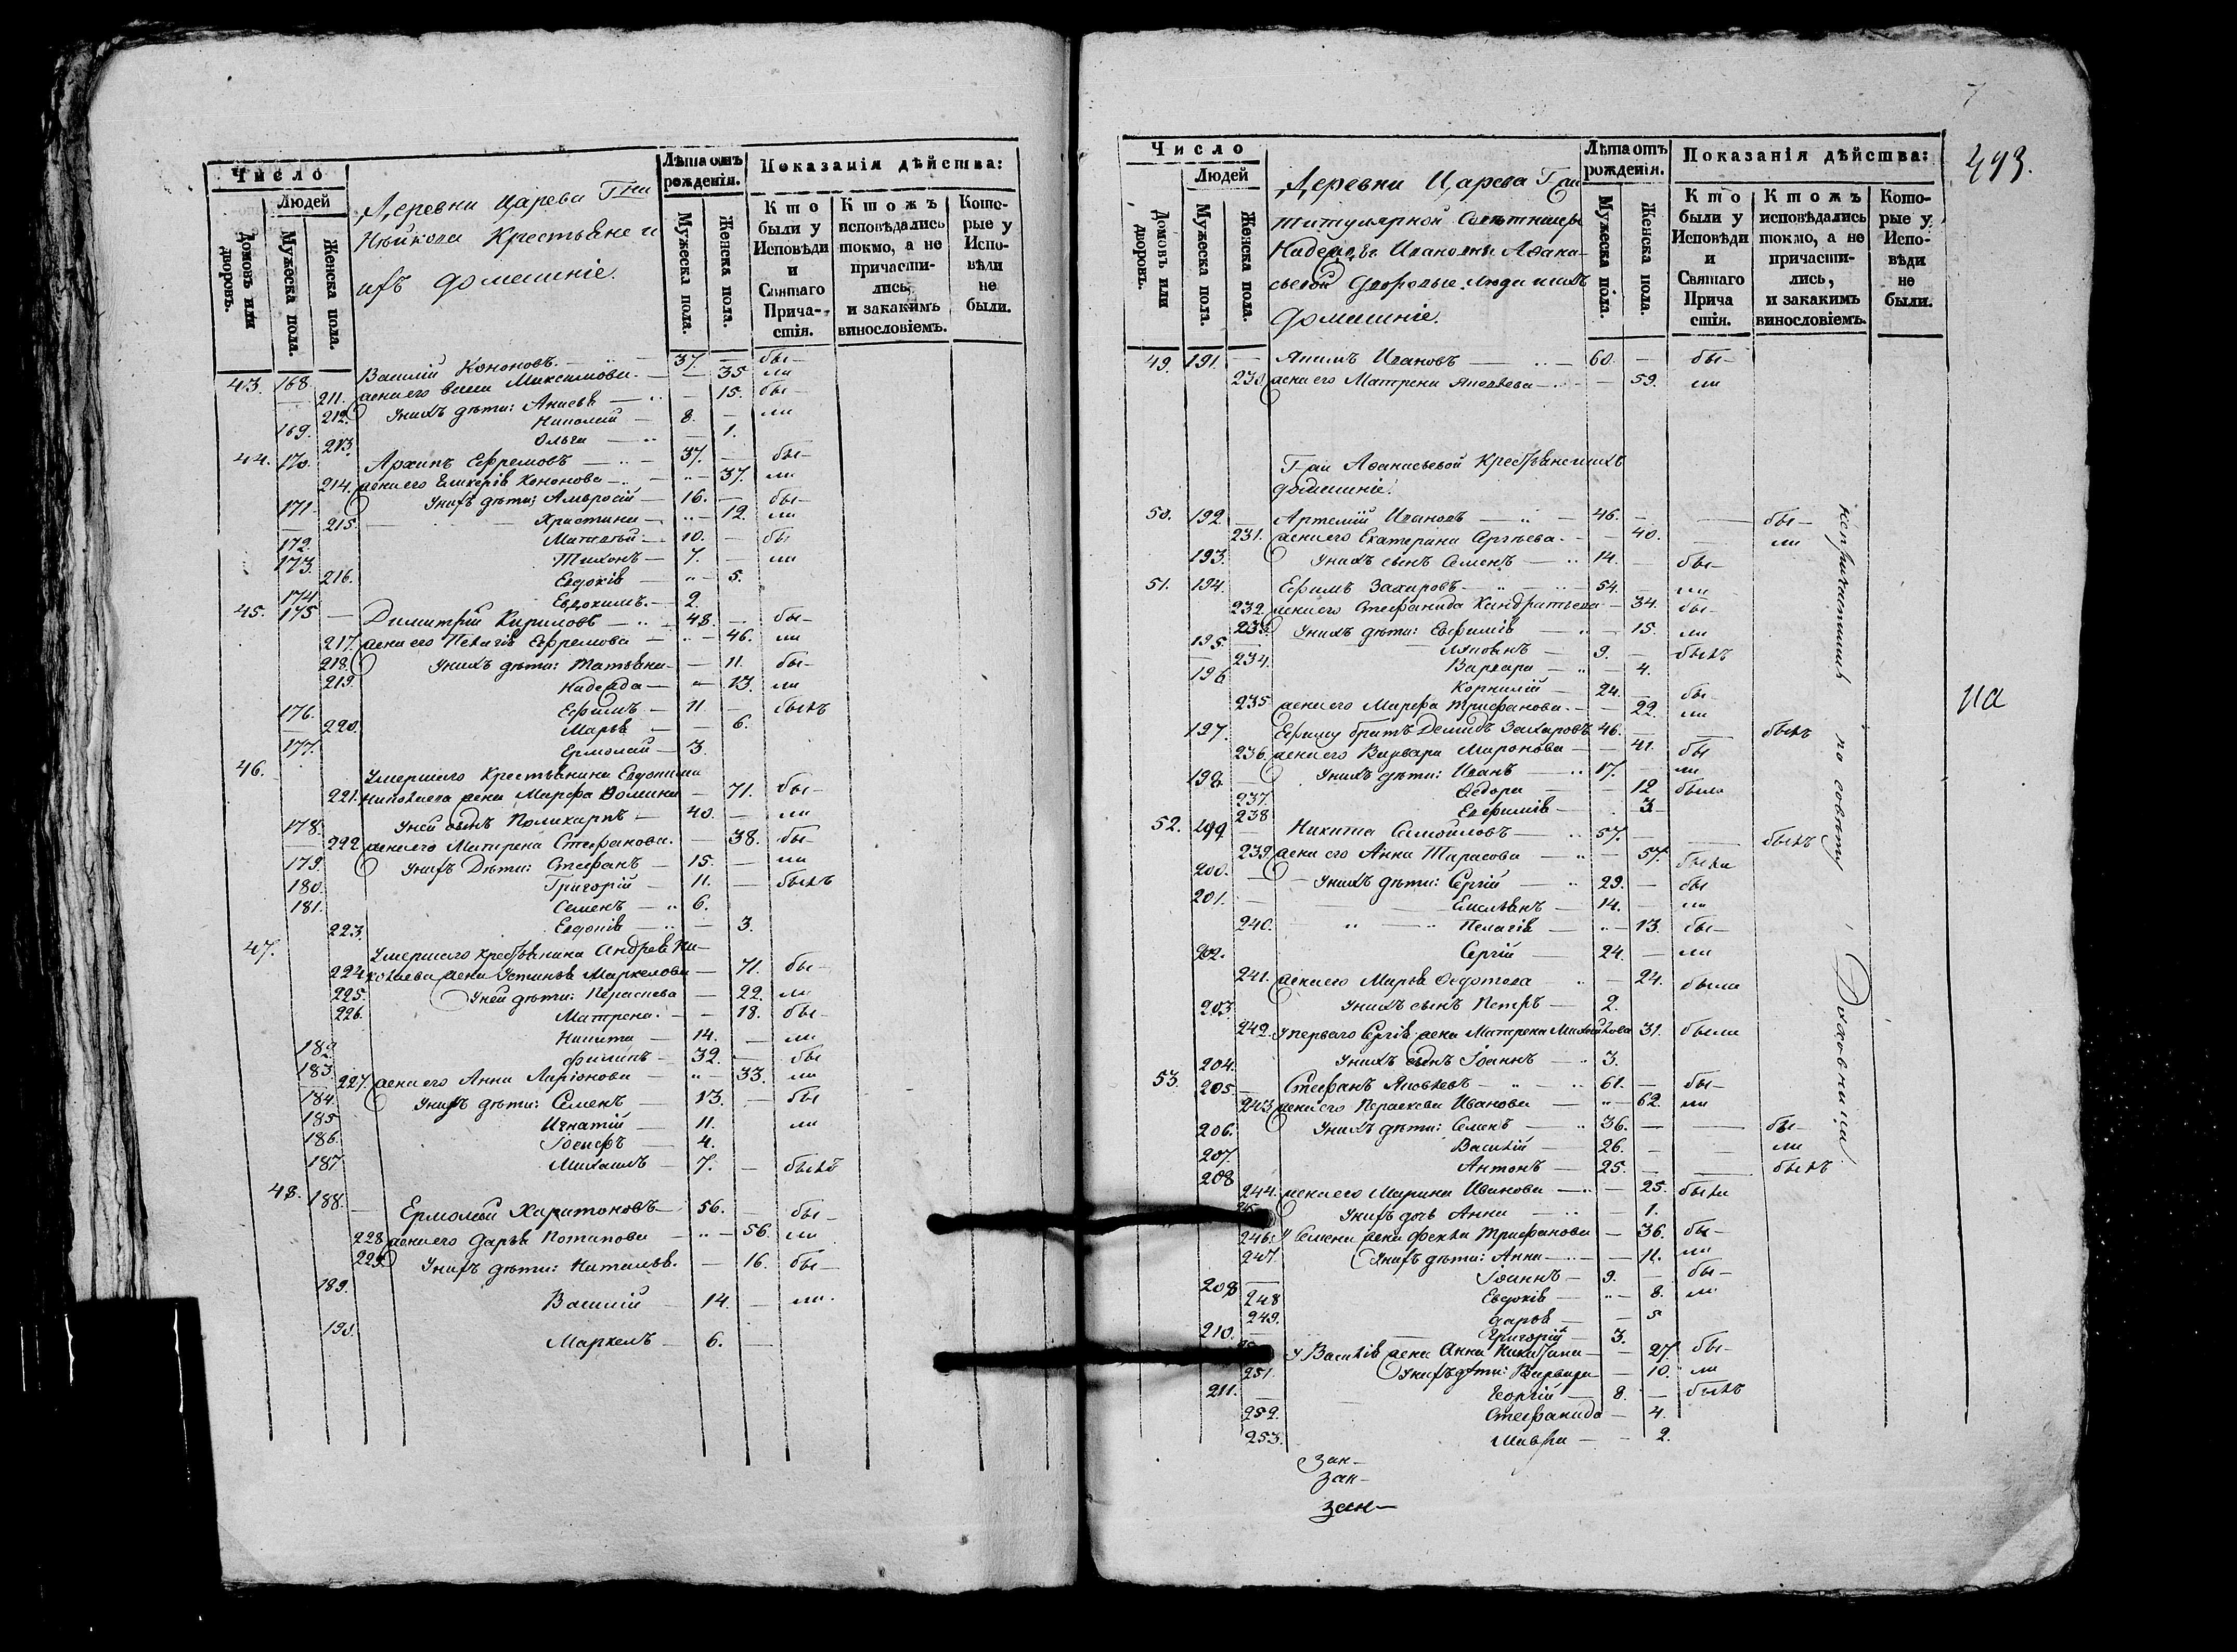 Число
Людей
Домовъ или дворовъ.
Мужеска пола.
Женска пола.
Деревни Царева Гна
Крестьяне и
ихъ домашніе.
Лѣта отъ рожденія.
Мужеска пола.
Женска пола.
Показанія дѣйства:
Кто были у Исповѣди и Святаго Прича-стія.
Ктожъ исповѣдались токмо, а не причасти-лись, и закакимъ винословіемъ.
Кото-рые у Испо-вѣди не были.
43. 168. Василій Кононовъ. 37. бы-
211. жена его Максимова. 35 ли
212. Унихъ дѣти: Анисья 15. бы-
169. Николай 8. ли
213. Ольга 1.
44. 170. Архипъ Ефремовъ 37. бы-
214. жена его Гликерія Кононова 37. ли
171. Унихъ дѣти: Амвросій 16. бы-
215. Христина 12. ли
172. Матвей 10. бы
173. Тихонъ 7. ли
216. Евдокія 5.
174 Евдокимъ. 2.
45. 175 Димитрій Кириловъ 48. бы-
217. жена его Пелагія Ефремова 46. ли
218. Унихъ дѣти: Татьяна 11. бы-
219. Надежда 13. ли
176. Ефимъ 11. былъ
220. Марья 6.
177. Ермолай 3.
46. Умершаго Крестьянина Евдокима
221. Николаева жена Марфа Фомина 71. бы-
178. Уней сынъ Поликарпъ 40. ли
222 жена его Матрена Стефанова. 38. бы-
179. Унихъ Дѣти: Стефанъ 15. ли
180. Григорій 11. былъ
181. Семенъ 6.
223. Евдокія 3.
47. Умершаго Крестьянина Андрея Ни-
224. колаева жена Устинья Маркелова 71. бы-
225. Уней дѣти: Параскева 22. ли
226. Матрена. 18. бы-
182 Никита 14. ли
183. Филипъ 32. бы
227. жена его Анна Ларіонова 33. ли
184. Унихъ дѣти: Семенъ 13. бы
185 Игнатій 11. ли
186. Іосифъ 4.
187. Михаилъ 7. былъ
48. 188. Ермолай Харитоновъ 56. бы-
228 жена его Дарья Потапова 56. ли
229. Унихъ дѣти: Наталья. 16. бы-
189. Василій 14. ли.
190. Маркелъ 6.
Число
Людей
Домовъ или дворовъ.
Мужеска пола.
Женска пола.
Деревни Царева Г-жи
титулярной Совѣтницы
Надежды Ивановны Афана-
сьевой Дворовые люди ихъ
домашніе.
Лѣта отъ рожденія.
Мужеска пола.
Женска пола.
Показанія дѣйства:
Кто были у Исповѣди и Святаго Прича стія.
Ктожъ исповѣдались токмо, а не причасти-лись, и закакимъ винословіемъ.
Кото-рые у Испо-вѣди не были.
493.
49. 191. Якимъ Ивановъ 60. бы-
230 жена его Матрена Яковлева 59. ли
Г-жи Афанасьевой Крестьяне ихъ
домашніе.
50. 192 Артемій Ивановъ 46. бы-
231. жена его Екатерина Сергѣева. 40. ли
193. Унихъ сынъ Семенъ 14. бы-
51. 194. Ефимъ Захаровъ 54. ли
232. жена его Стефанида Кондратьева 34. бы-
233. Унихъ дѣти: Евфимія 15. ли
195. 9. былъ
234. Варвара 4.
196 Корнилій 24. бы-
235 жена его Марфа Трифанова. 22. ли
197. Ефиму братъ Демидъ Захаровъ 46. былъ
236. жена его Варвара Миронова 41. бы
198 Унихъ дѣти: Иванъ 17. ли
237. Федора 12 была
238 Евфимія 3
52. 199 Никита Самойловъ 57. былъ
239. жена его Анна Тарасова 57. была
200. Унихъ дѣти: Сергій 29. бы
201. Емельянъ 14. ли
240. Пелагія 13. бы-
202. Сергій 24. ли
241. жена его Марья Федотова 24. была
203. Унихъ сынъ Петръ 2.
242. Уперваго Сергія жена Матрена Михайлова 31. была
204. Унихъ сынъ Іоаннъ 3.
53. 205 Стефанъ Яковлевъ 61. бы-
243 жена его Параскева Иванова 62. ли
206. Унихъ дѣти: Семенъ 36. бы-
207. Василій 26. ли
208 Антонъ 25. былъ
244. жена его Марина Иванова 25. была
Унихъ дочь Анна 1.
246. У Семена жена Фекла Трифанова 36. бы-
247. Унихъ дѣти: Анна 11. ли
209 Іоаннъ 9. бы-
248 Евдокія 8. ли
249. Дарья 5
210. Григорій 3.
У Василія жена Анна Никитина 27. бы-
251. Унихъ дѣти: Варвара 10. ли
211. Георгій 8. былъ
252. Стефанида 4.
253. Мавра 2.
непричатился по совѣту Духовника.
зан-
зан-
зан-